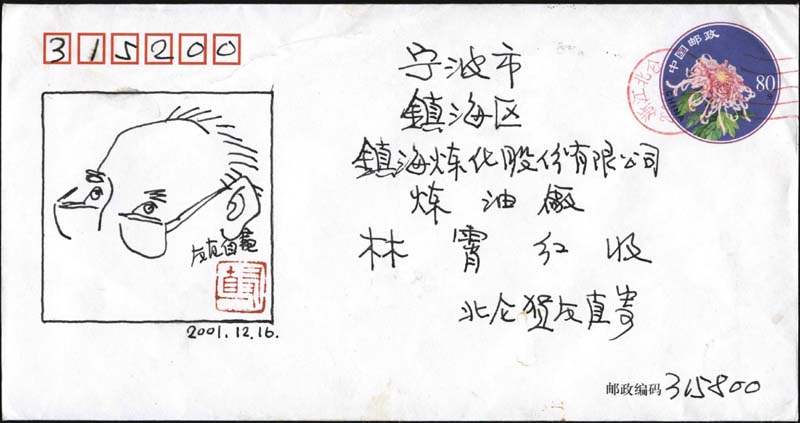 315200
中国邮政
80分
宁波市
鎮海区
鎮海炼化股份有限公司
炼油廠
林霄红收
北仑贺友直寄
友直自畫
2001.12.16.
邮政编码 315800